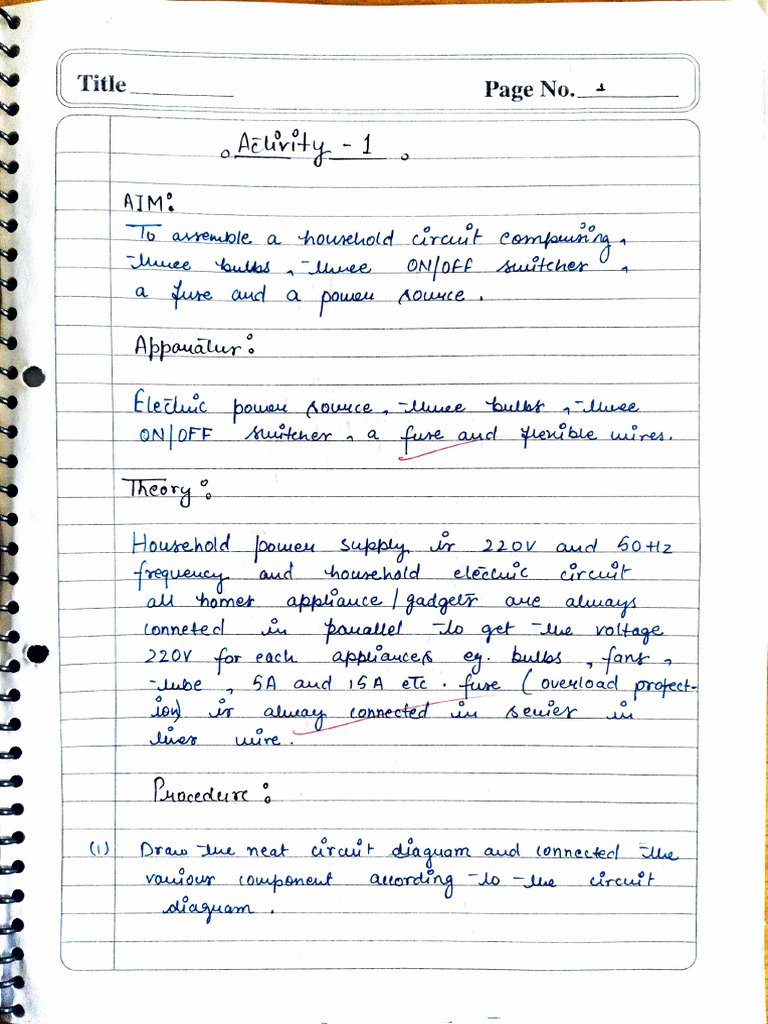 Title
Page No. 1
Activity - 1
AIM:
To assemble a household circuit comprising,
three bulbs, three ON/OFF switches,
a fuse and a power source.
Apparatus:
Electric power source, three bulbs, three
ON/OFF switches, a fuse and flexible wires.
Theory:
Household power supply is 220V and 50Hz
frequency and household electric circuit
all homes appliance/gadgets are always
conneted in parallel to get the voltage
220V for each appliances eg. bulbs, fans,
tube, 5A and 15A etc. fuse (overload protect-
ion) is alway connected in series in
lives wire.
Procedure:
(1) Draw the neat circuit diagram and connected the
various component according to the circuit
diagram.